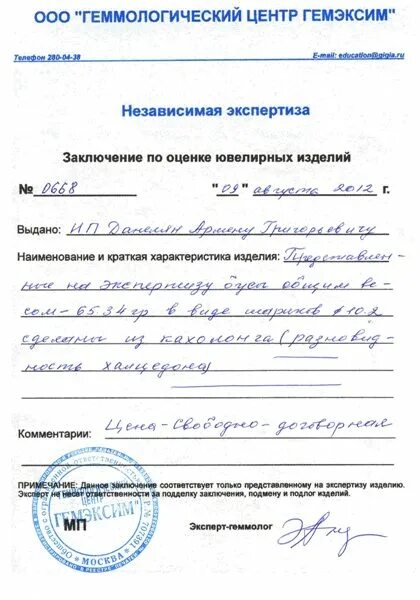 ООО "ГЕММОЛОГИЧЕСКИЙ ЦЕНТР ГЕМЭКСИМ"
Телефон 280-04-38 E-mail: education@gigia.ru
Независимая экспертиза
Заключение по оценке ювелирных изделий
№ 0668 "09" августа 2012 г.
Выдано: ИП Данелян Армену Григорьевичу
Наименование и краткая характеристика изделия: Представлен-
ные на экспертизу бусы общим ве-
сом - 6534 гр в виде шариков ø 10.2
сделаны из кахолонга (разновид-
ность халцедона)
Цена - Свободно - договорная
Комментарии:
ПРИМЕЧАНИЕ: Данное заключение соответствует только представленному на экспертизу изделию.
Эксперт не несет ответственности за подделку заключения, подмену и подлог изделий.
ЦЕНТР
ГЕМЭКСИМ"
МП
МОСКВА
Эксперт-геммолог